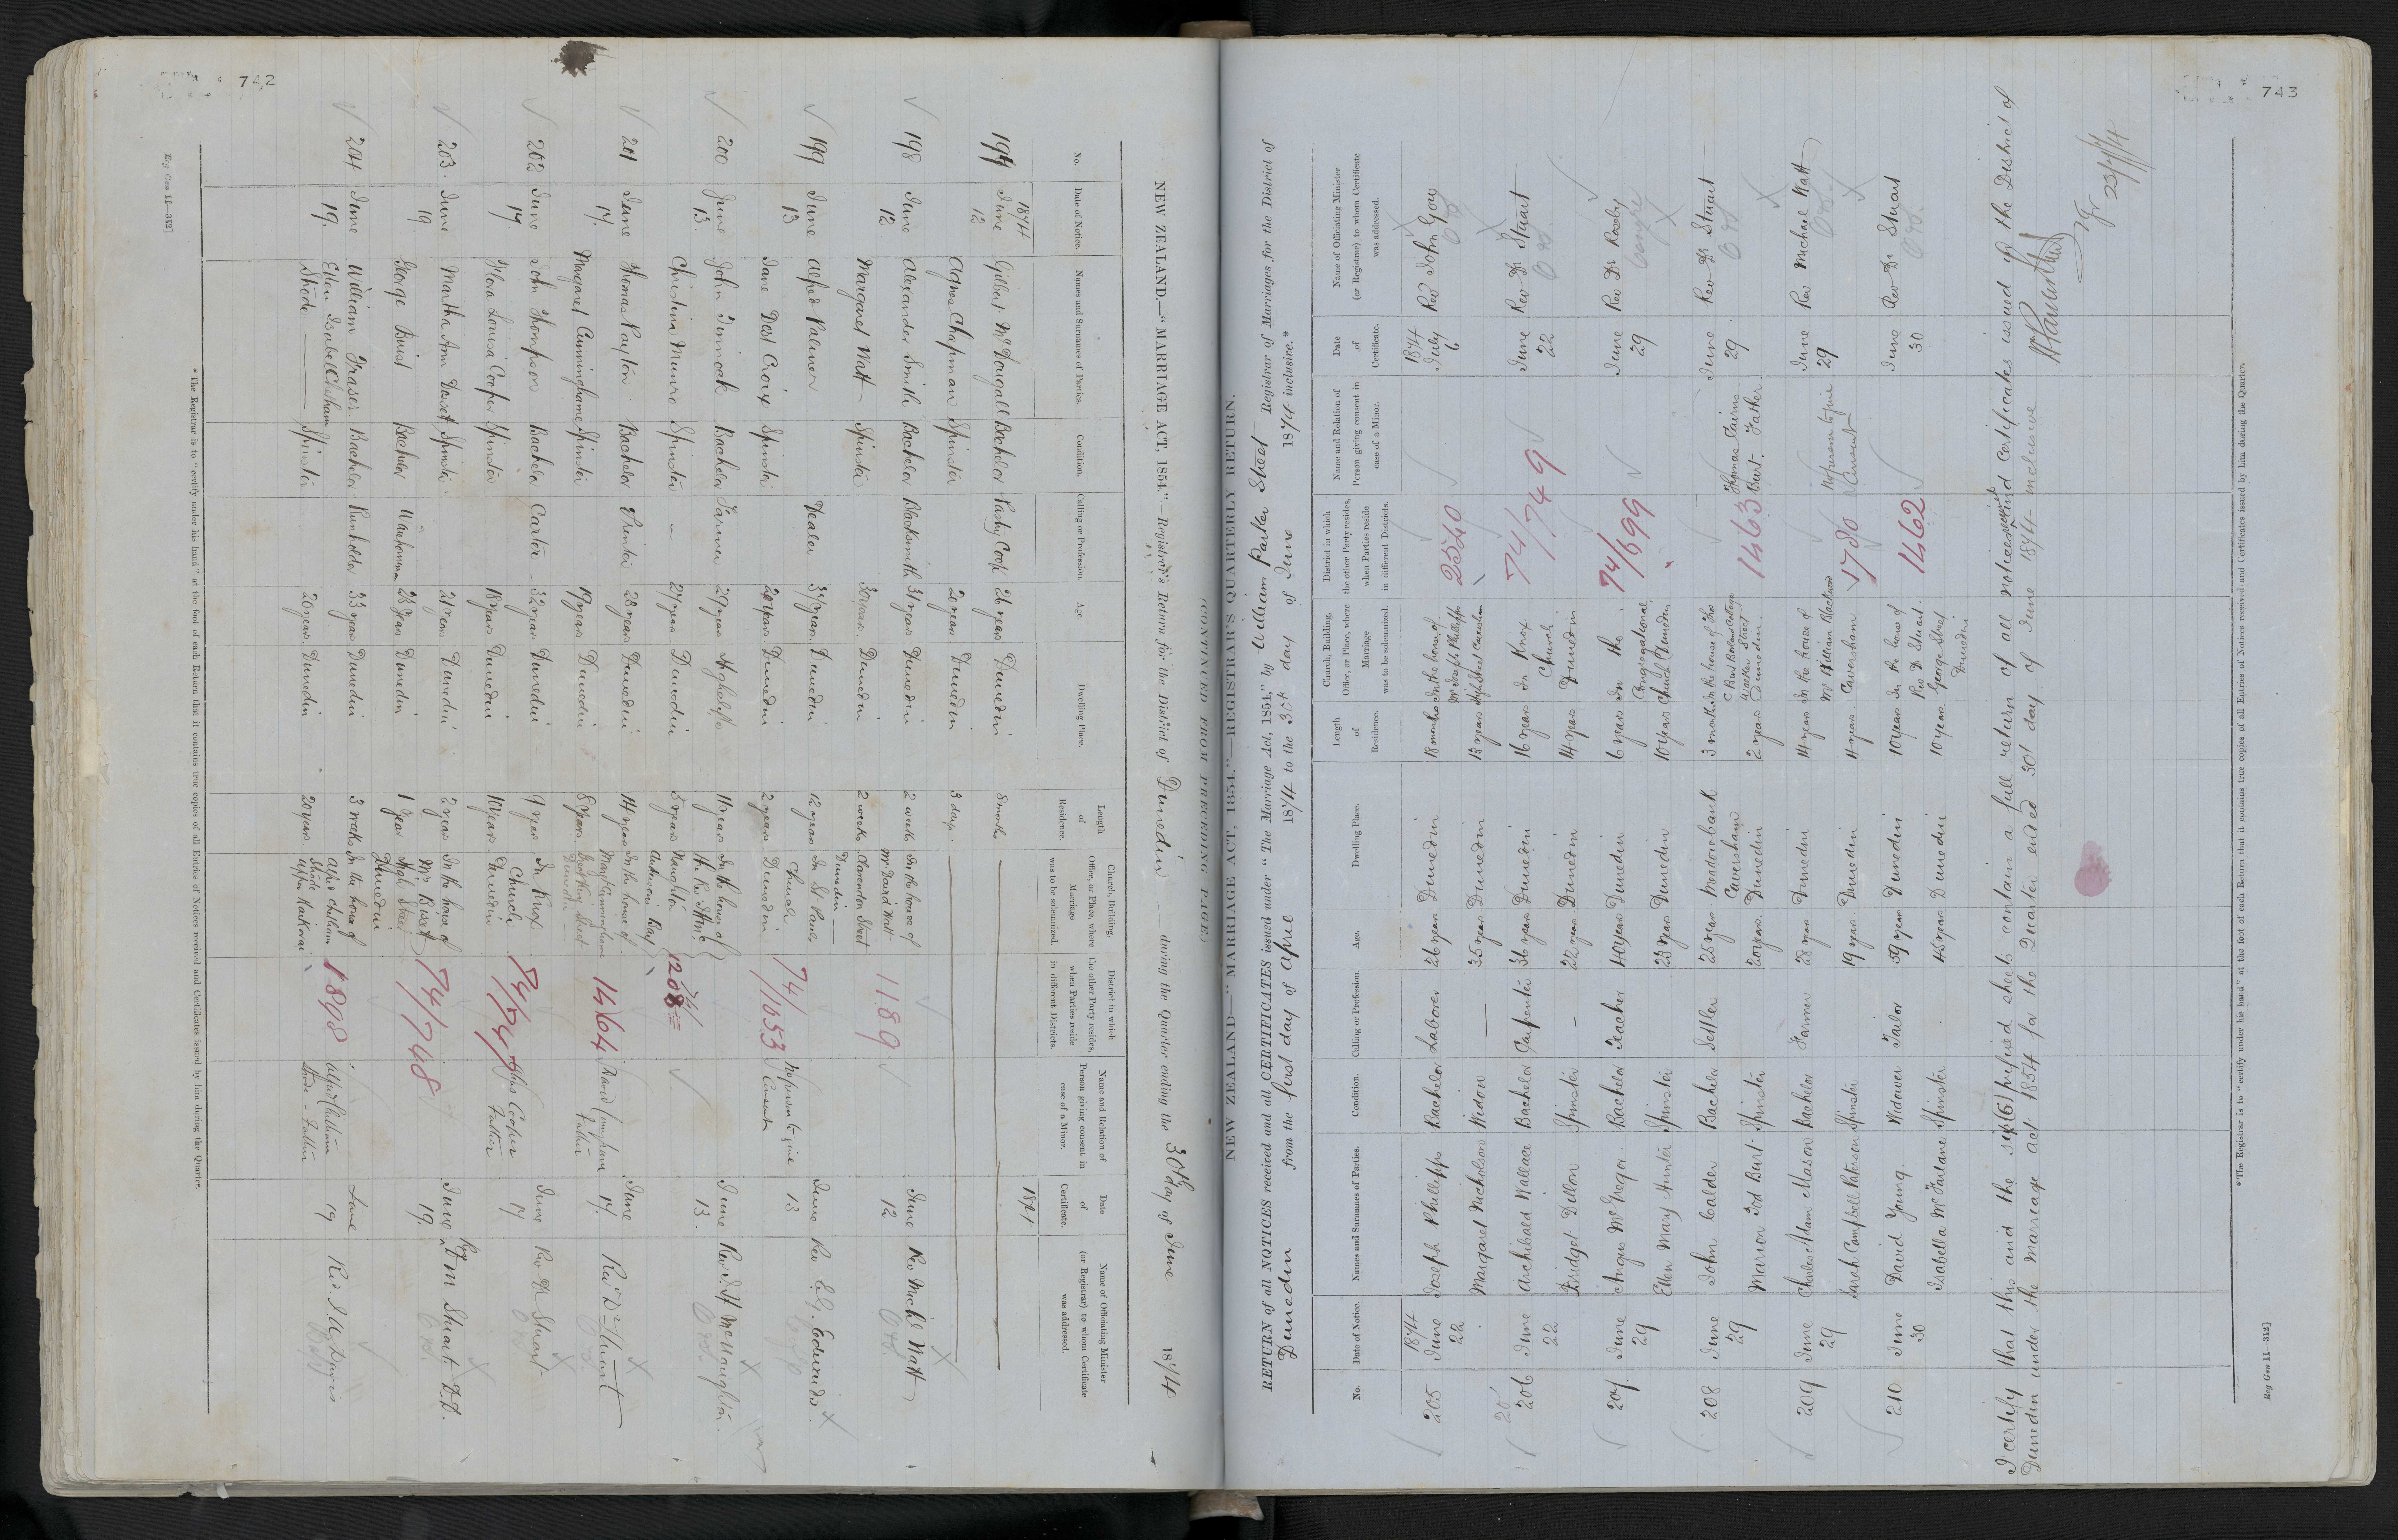 742
NEW ZEALAND.—"MARRIAGE ACT, 1854."—Registrar's Return for the District of Dunedin during the Quarter ending the 30th day of June 1874
No. Date of Notice. Names and Surnames of Parties. Condition. Calling or Profession. Age. Dwelling Place. Length of Residence. Church, Building, Office, or Place, where Marriage was to be solemnized. District in which the other Party resides, when Parties reside in different Districts. Name and Relation of Person giving consent in case of a Minor. Date of Certificate. Name of Officiating Minister (or Registrar) to whom Certificate was addressed.
1874 1874
197 June 12 Gilbert McDougall Bachelor Pastry Cook 26 years Dunedin
Agnes Chapman Spinster 20 years Dunedin 3 days
198 June 12 Alexander Smith Bachelor Blacksmith 31 years Dunedin 2 weeks In the house of Mr David Watt 1189 June 12 Rev Michl Watt
Margaret Watt Spinster 30 years Dunedin 2 weeks Clarendon Street Dunedin
199 June 13 Alfred Palmer Dealer Dunedin 12 years In St Pauls Church 74/1053 No person to give Consent June 13 Rev E.G. Edwards
Jane Spinster 20 years Dunedin 2 years Dunedin
200 June 13 John Tinnock Bachelor Farmer 29 years 11 years In the house of the Rev 74/1208 June 13 Rev McNaughton
Christina Munro Spinster — 27 years Dunedin 5 years Naughton
201 June 17 Thomas Paylon Bachelor 28 years Dunedin 14 years In the house of 1464 David Cunningham Father June 17 Rev Dr Stuart
Margaret Cunninghame Spinster 19 years Dunedin 8 years Dunedin
202 June 17 John Thompson Bachelor Carter 32 years Dunedin 9 years In Knox Church 74/747 Cooper Father June 17 Rev Dr Stuart
Flora Louisa Cooper Spinster 18 years Dunedin 10 years Dunedin
203 June 19 Martha Ann Spinster 21 years Dunedin 2 years In the house of 74/748 June 19 Stuart D.D.
George Buist Bachelor 28 years Dunedin 1 year High Street Dunedin
204 June 19 William Fraser Bachelor Runholder 33 years Dunedin 3 weeks In the house of Alfred Chetham Strode Upper Kaikorai 1898 Alfred Chetham Strode - Father June 19 Rev Davis
Ellen Isabel Chetham Strode Spinster 20 years Dunedin 20 years
*The Registrar is to "certify under his hand" at the foot of each Return that it contains true copies of all Entries of Notices received and Certificates issued by him during the Quarter.
Reg Gen 11—312]
743
(CONTINUED FROM PRECEDING PAGE.)
NEW ZEALAND—"MARRIAGE ACT, 1854."—REGISTRAR'S QUARTERLY RETURN.
RETURN of all NOTICES received and all CERTIFICATES issued under "The Marriage Act, 1854," by William Parker Street Registrar of Marriages for the District of
Dunedin from the first day of April 1874 to the 30th day of June 1874 inclusive.*
No. Date of Notice. Names and Surnames of Parties. Condition. Calling or Profession. Age. Dwelling Place. Length of Residence. Church, Building, Office, or Place, where Marriage was to be solemnized. District in which the other Party resides, when Parties reside in different Districts. Name and Relation of Person giving consent in case of a Minor. Date of Certificate. Name of Officiating Minister (or Registrar) to whom Certificate was addressed.
1874 1874
205 June 22 Joseph Phillipps Bachelor Laborer 26 years Dunedin 18 months In the house of Mr Joseph Phillipps 2540 July 6 Rev John Gow
Margaret Nicholson Widow — 35 years Dunedin 13 years High Street Caversham
206 June 22 Archibald Wallace Bachelor Carpenter 36 years Dunedin 16 years In Knox Church 74/749 June 22 Rev Dr Stuart
Bridget Dillon Spinster - 22 years Dunedin 14 years Dunedin
207 June 29 Angus McGregor Bachelor Teacher 40 years Dunedin 6 years In the Congregational 74/699 June 29 Rev Dr Roseby
Ellen Mary Hunter Spinster 23 years Dunedin 10 years Church Dunedin
208 June 29 John Calder Bachelor Settler 25 years Caversham 3 months In the house of Thos C Burt 1463 Thomas Cairns Burt. Father. June 29 Rev Dr Stuart
Marion Tod Burt Spinster 20 years Dunedin 2 years Walker Street Dunedin
209 June 29 Charles Adam Mason Bachelor Farmer 28 years Dunedin 14 years In the house of Mr William Blackwood 1780 No person to give Consent June 29 Rev Michael Watt
Sarah Campbell Paterson Spinster 19 years Dunedin 4 years Caversham
210 June 30 David Young Widower Tailor 39 years Dunedin 10 years In the house of Rev Dr Stuart 1462 June 30 Rev Dr Stuart
Isabella McFarlane Spinster 45 years Dunedin 10 years George Street Dunedin
I certify that this and the six (6) prefixed sheets contain a full return of all notices received and certificates issued of the District of
Dunedin under the Marriage Act 1854 for the Quarter ended 30th day of June 1874 inclusive
*The Registrar is to "certify under his hand" at the foot of each Return that it contains true copies of all Entries of Notices received and Certificates issued by him during the Quarter.
Reg Gen 11—312]